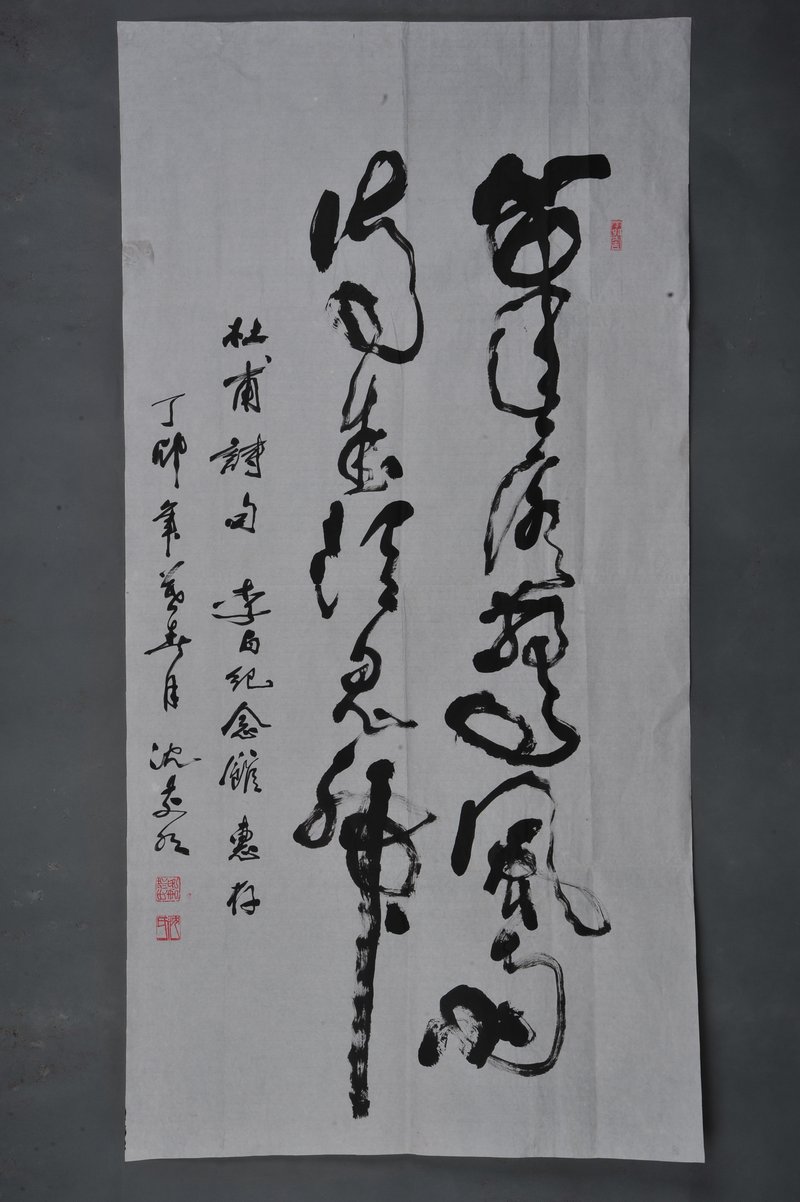 筆落驚風雨
詩成泣鬼神
杜甫詩句 李白紀念館惠存
丁卯年暮春月 沈